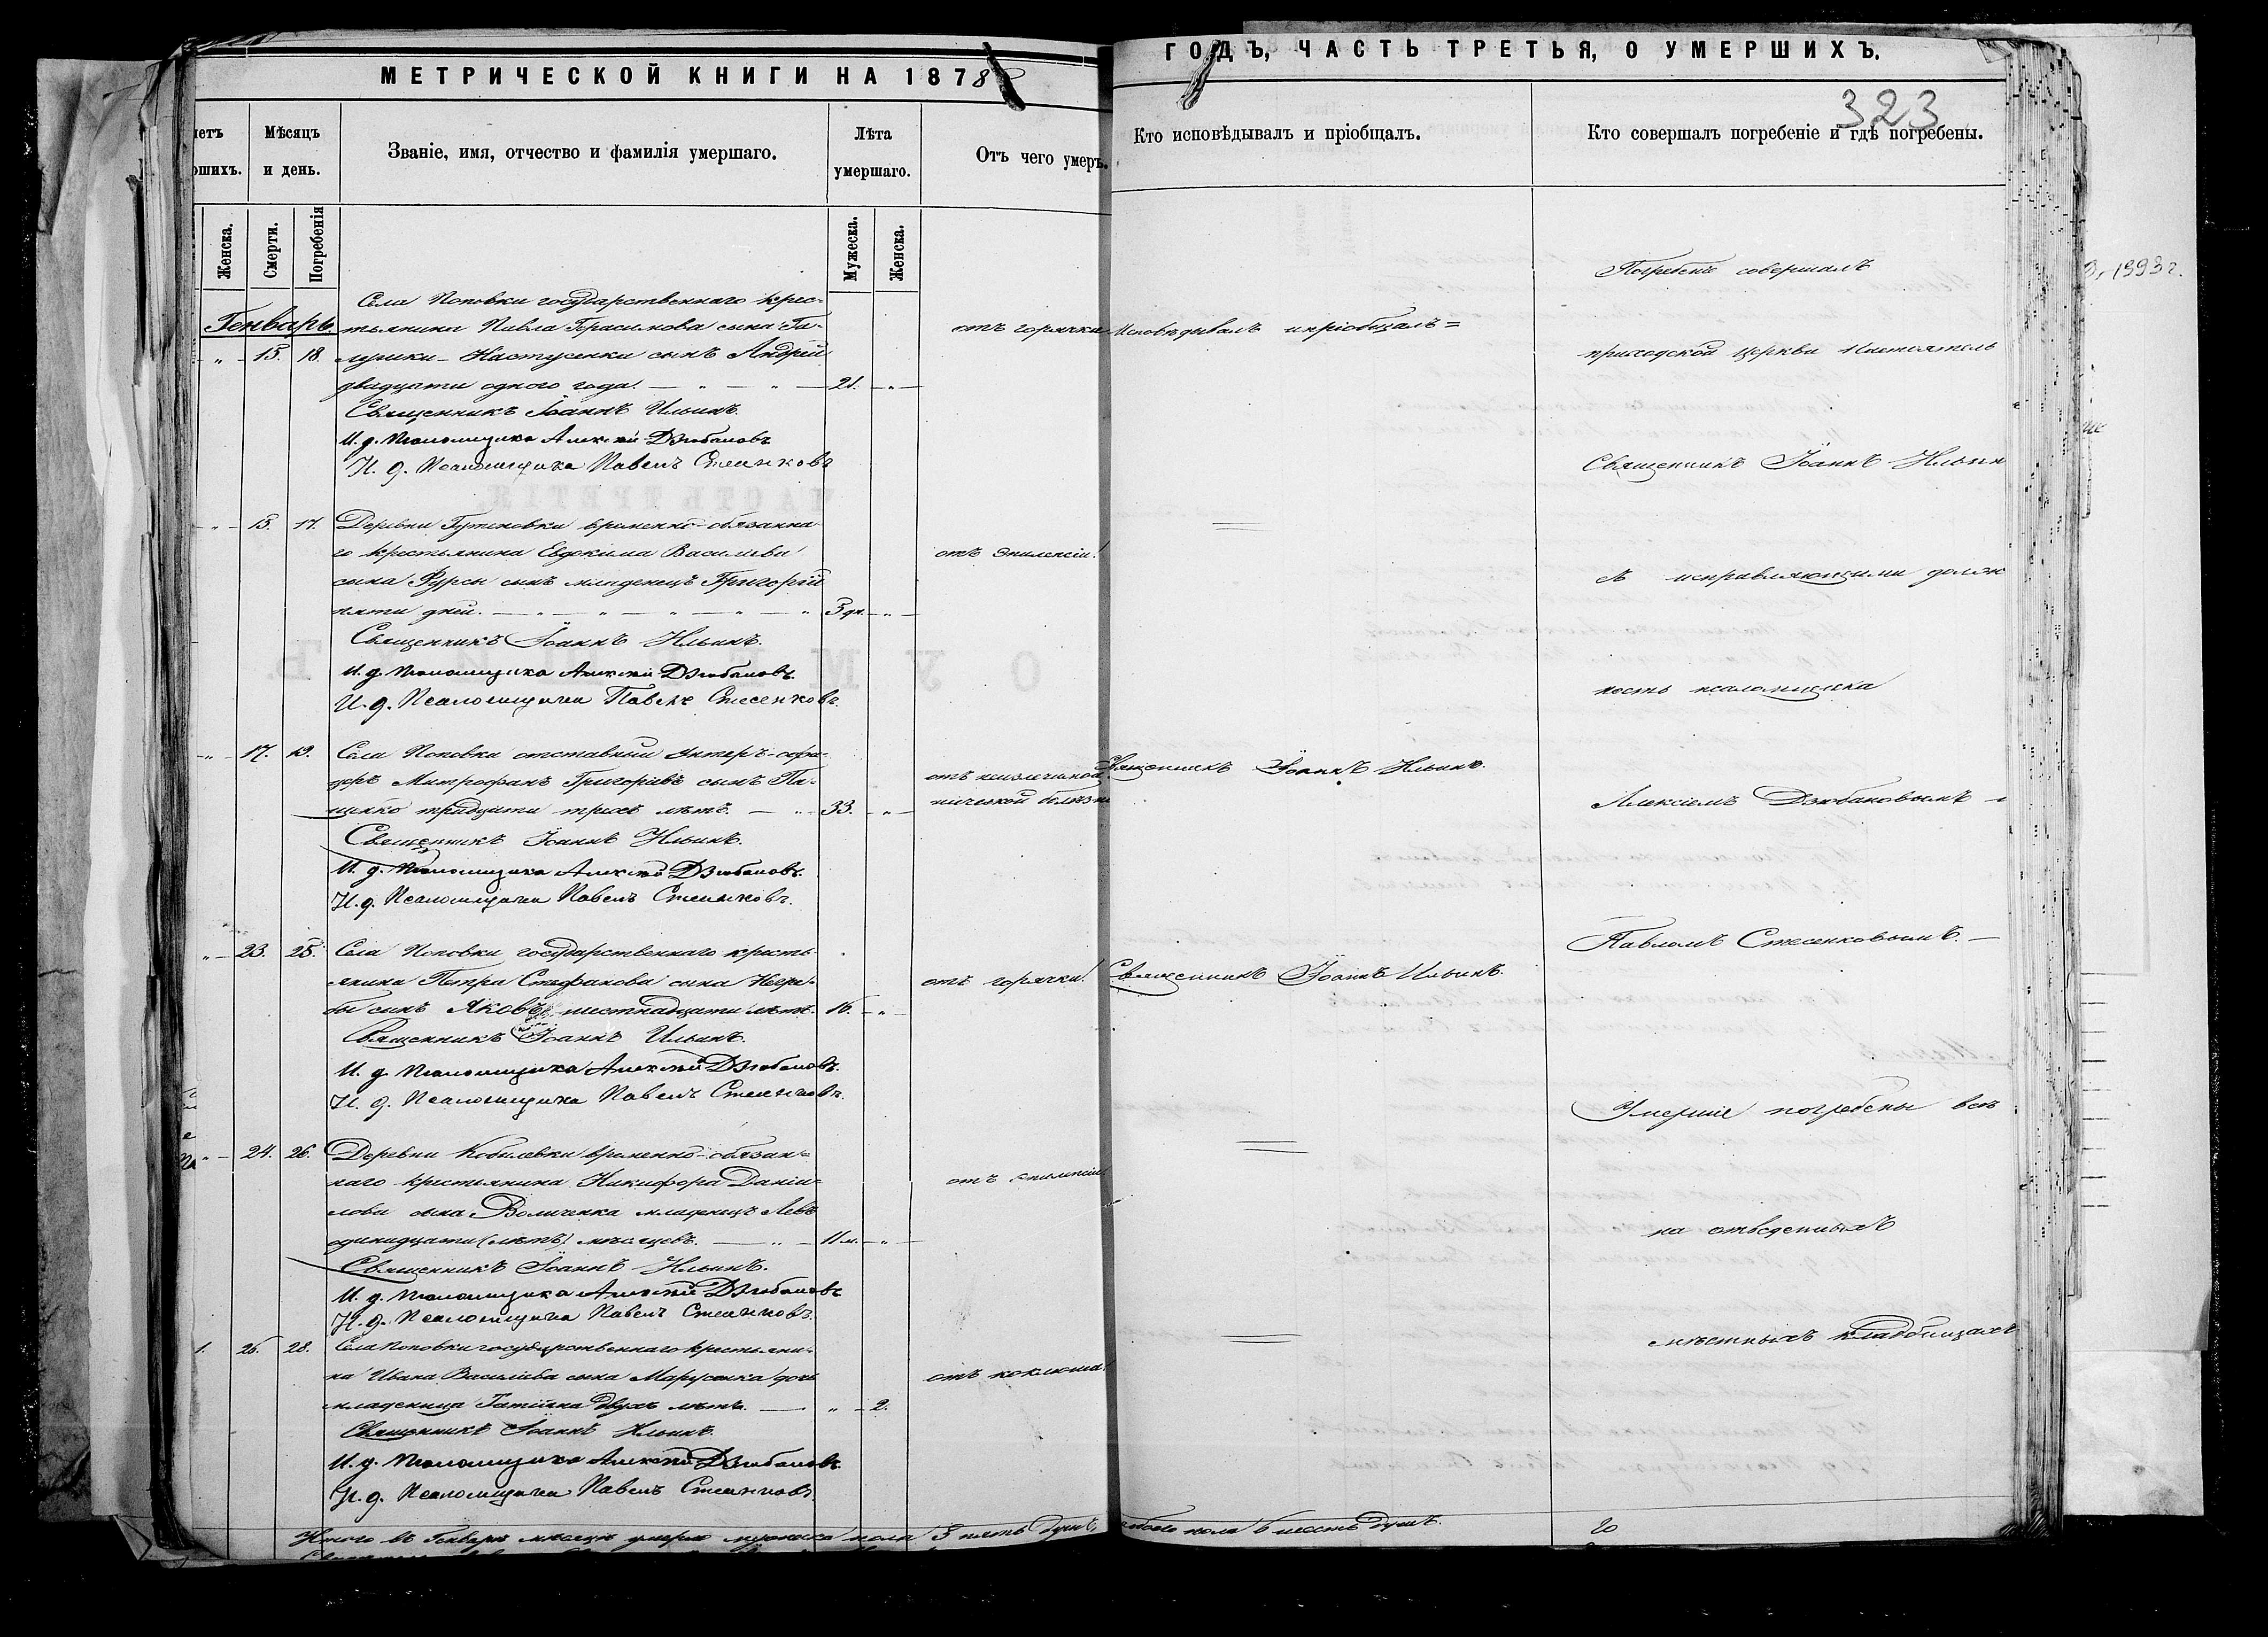 МЕТРИЧЕСКОЙ КНИГИ НА 1878
ГОДЪ, ЧАСТЬ ТРЕТЬЯ, О УМЕРШИХЪ.
323
Мѣсяцъ и день.
Званіе, имя, отчество и фамилія умершаго.
Лѣта умершаго.
Отъ чего умеръ.
Кто исповѣдывалъ и пріобщалъ.
Кто совершалъ погребеніе и гдѣ погребены.
Женска.
Смерти.
Погребенія
Мужеска.
Женска.
Генварь.
Села Поповки государственнаго крес-
тьянина Павла Герасимова сына Га-
15. 18. Настусенки сынъ Андрей
двадцати одного года. 21.
отъ горячки
Исповѣдывалъ и пріобщалъ =
Священникъ Іоаннъ Ильинъ.
И. д. Псаломщика Алексѣй Дзюбановъ
И. д. Псаломщика Павелъ Стесенковъ
15. 17. Деревни временно-обязанна-
го крестьянина Евдокима Васильева
сына Фурсы сынъ младенецъ Григорій
пяти дней. 5 дн.
отъ эпилепсіи.
Священникъ Іоаннъ Ильинъ.
И. д. Псаломщика Алексѣй Дзюбановъ.
И. д. Псаломщика Павелъ Стесенковъ.
17. 19. Села Поповки отставный унтеръ-офи-
церъ Митрофанъ Григорьевъ сынъ Па-
щенко тридцати трехъ лѣтъ. 33.
Священникъ Іоаннъ Ильинъ.
Священникъ Іоаннъ Ильинъ.
И. д. Псаломщика Алексѣй Дзюбановъ.
И. д. Псаломщика Павелъ Стесенковъ.
23. 25. Села Поповки государственнаго кресть-
янина Петра Стефанова сына Негри-
бы сынъ Яковъ шестнадцати лѣтъ. 16.
отъ горячки.
Священникъ Іоаннъ Ильинъ.
Священникъ Іоаннъ Ильинъ.
И. д. Псаломщика Алексѣй Дзюбановъ.
И. д. Псаломщика Павелъ Стесенковъ.
24. 26. Деревни Кобилевки временно-обязан-
наго крестьянина Никифора Даніи-
лова сына Величенка младенецъ Левъ
одинадцати (лѣтъ) мѣсяцевъ. 11 м.
отъ эпилепсіи
Священникъ Іоаннъ Ильинъ.
И. д. Псаломщика Алексѣй Дзюбановъ
И. д. Псаломщика Павелъ Стесенковъ.
1. 26. 28. Села Поповки государственнаго крестьяни-
на Ивана Васильева сына Марусенка дочь
младеница Татіяна двухъ лѣтъ. 2.
отъ коклюша.
Священникъ Іоаннъ Ильинъ.
И. д. Псаломщика Алексѣй Дзюбановъ.
И. д. Псаломщика Павелъ Стесенковъ.
Итого въ Генварѣ мѣсяцѣ умерло мужеска пола 5 пять душъ, обоего пола 6 шесть душъ.
Погребеніе совершалъ
приходской церкви Настоятель
Священникъ Іоаннъ Ильин
съ исправляющими долж
ность псаломщика
Алексіемъ Дзюбановымъ и
Павломъ Стесенковымъ.
Умершіе погребены всѣ
на отведенныхъ
мѣстныхъ кладбищахъ